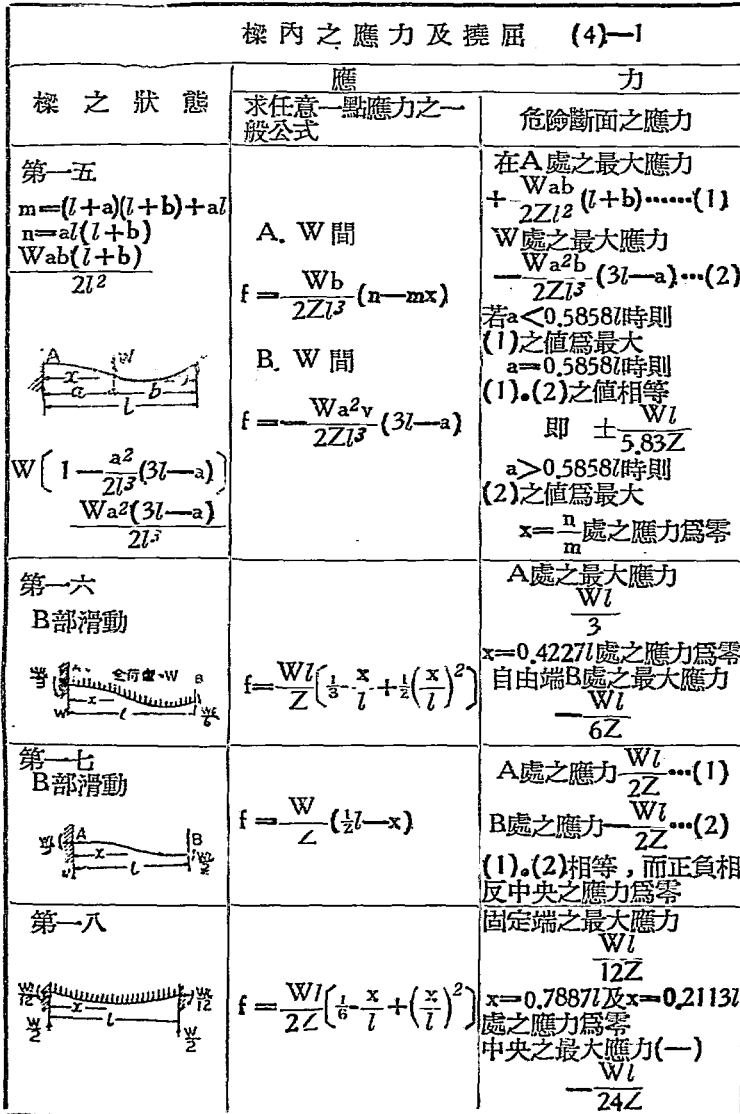 樑內之應力及撓屈 (4)—I
樑之狀態
應力
求任意一點應力之一
般公式
危險斷面之應力
第一五
m=(l+a)(l+b)+al
n=al(l+b)
Wab(l+b)/2l²
A W
x
a b
l
W[1—a²/2l³(3l—a)]
Wa²(3l—a)/2l³
A. W間
f=Wb/2Zl³(n—mx)
B. W間
f=—Wa²v/2Zl³(3l—a)
在A處之最大應力
+Wab/2Zl²(l+b)……(1)
W處之最大應力
—Wa²b/2Zl³(3l—a)…(2)
若a<0.5858l時則
(1)之值爲最大
a=0.5858l時則
(1)。(2)之值相等
即 士Wl/5.83Z
a>0.5858l時則
(2)之值爲最大
x=n/m處之應力爲零
第一六
B部滑動
全荷重=W B
x
W l
f=Wl/Z[1/3-x/l+1/2(x/l)²]
A處之最大應力
Wl/3
x=0.4227l處之應力爲零
自由端B處之最大應力
—Wl/6Z
第一七
B部滑動
A B
x
l
f=W/Z(½l—x)
A處之應力Wl/2Z…(1)
B處之應力—Wl/2Z…(2)
(1)。(2)相等，而正負相
反中央之應力爲零
第一八
Wl/12 Wl/12
x
l
W/2 W/2
f=Wl/2Z[1/6-x/l+(x/l)²]
固定端之最大應力
Wl/12Z
x=0.7887l及x=0.2113l
處之應力爲零
中央之最大應力(—)
—Wl/24Z